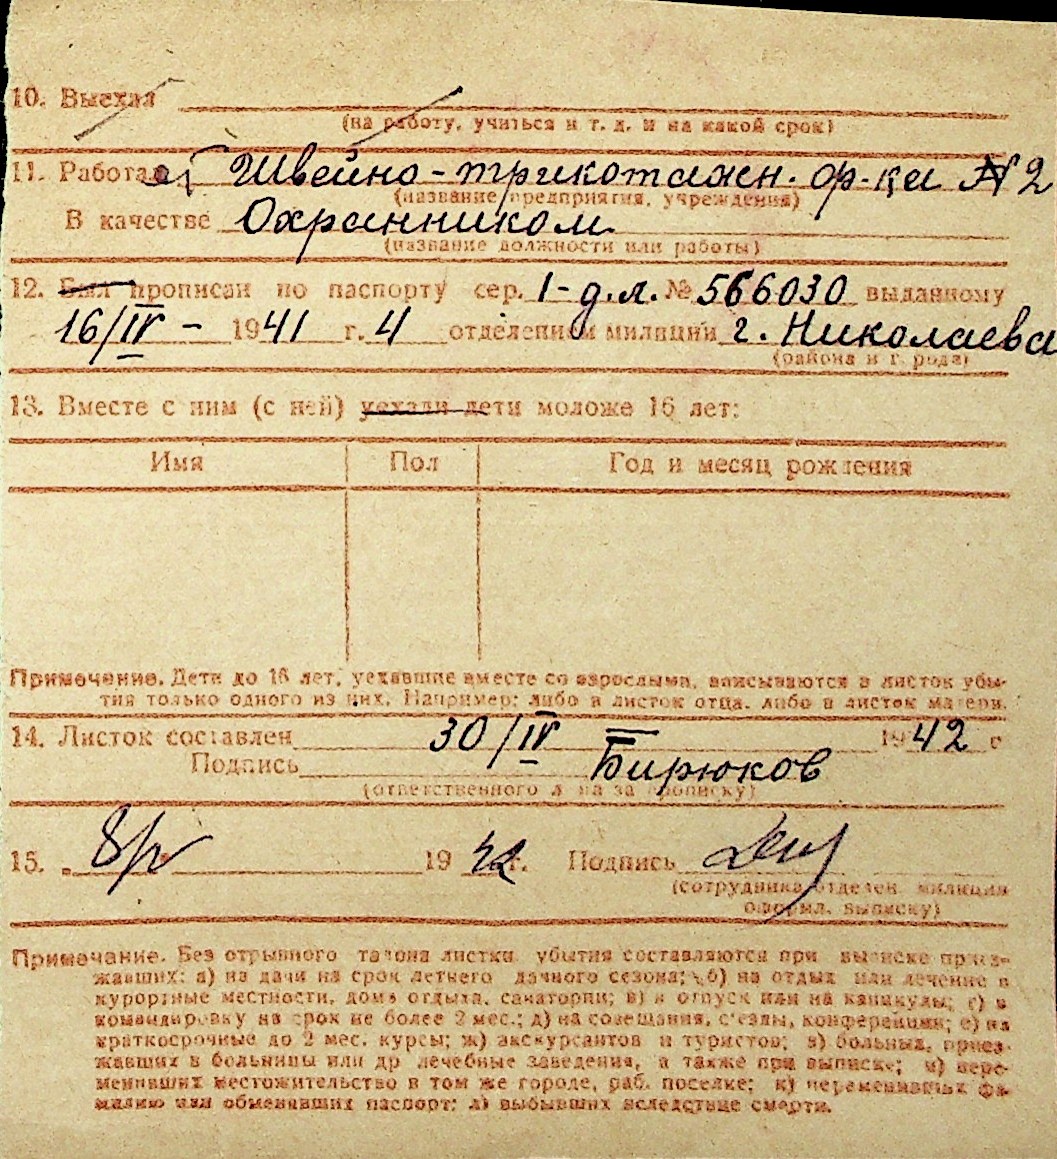 10. Выехал
(на работу, учиться и т. д. и на какой срок)
11. Работал Швейно-трикотажн. ф-ка № 2
(название предприятия, учреждения)
В качестве Охранником
(название должности или работы)
12. Был прописан по паспорту сер. 1-д.л. № 566030 выданному
16/IV - 1941 г. 4 отделением милиции г. Николаева
(района и города)
13. Вместе с ним (с ней) уехали дети моложе 16 лет:
Имя Пол Год и месяц рождения
Примечание. Дети до 16 лет, уехавшие вместе со взрослыми, вписываются в листок убы-
тия только одного из них. Например: либо в листок отца, либо в листок матери.
14. Листок составлен 30/IV 1942 г
Подпись Бирюков
(ответственного лица за прописку)
15. 8/V 1942 г. Подпись
(сотрудника отделен. милиции
оформл. выписку)
Примечание. Без отрывного талона листки убытия составляются при выписке приез-
жавших: а) на дачи на срок летнего дачного сезона; б) на отдых или лечение в
курортные местности, дома отдыха, санатории; в) в отпуск или на каникулы; г) в
командировку на срок не более 2 мес.; д) на совещания, съезды, конференции; е) на
краткосрочные до 2 мес. курсы; ж) экскурсантов и туристов; з) больных, приез-
жавших в больницы или др лечебные заведения, а также при выписке; и) пере-
менивших местожительство в том же городе, раб. поселке; к) переменивших фа-
милию или обменявших паспорт; л) выбывших вследствие смерти.